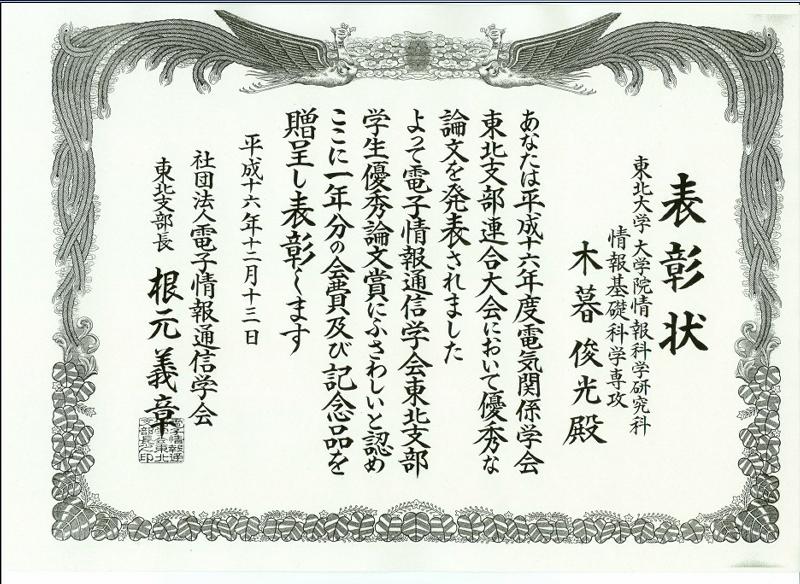 表彰状
東北大学 大学院情報科学研究科
情報基礎科学専攻
木暮 俊光 殿
あなたは平成十六年度電気関係学会
東北支部連合大会において優秀な
論文を発表されました
よって電子情報通信学会東北支部
学生優秀論文賞にふさわしいと認め
ここに一年分の会費及び記念品を
贈呈し表彰します
平成十六年十二月十三日
社団法人電子情報通信学会
東北支部長 根元義章
電子情報通
信学会東北
支部長之印